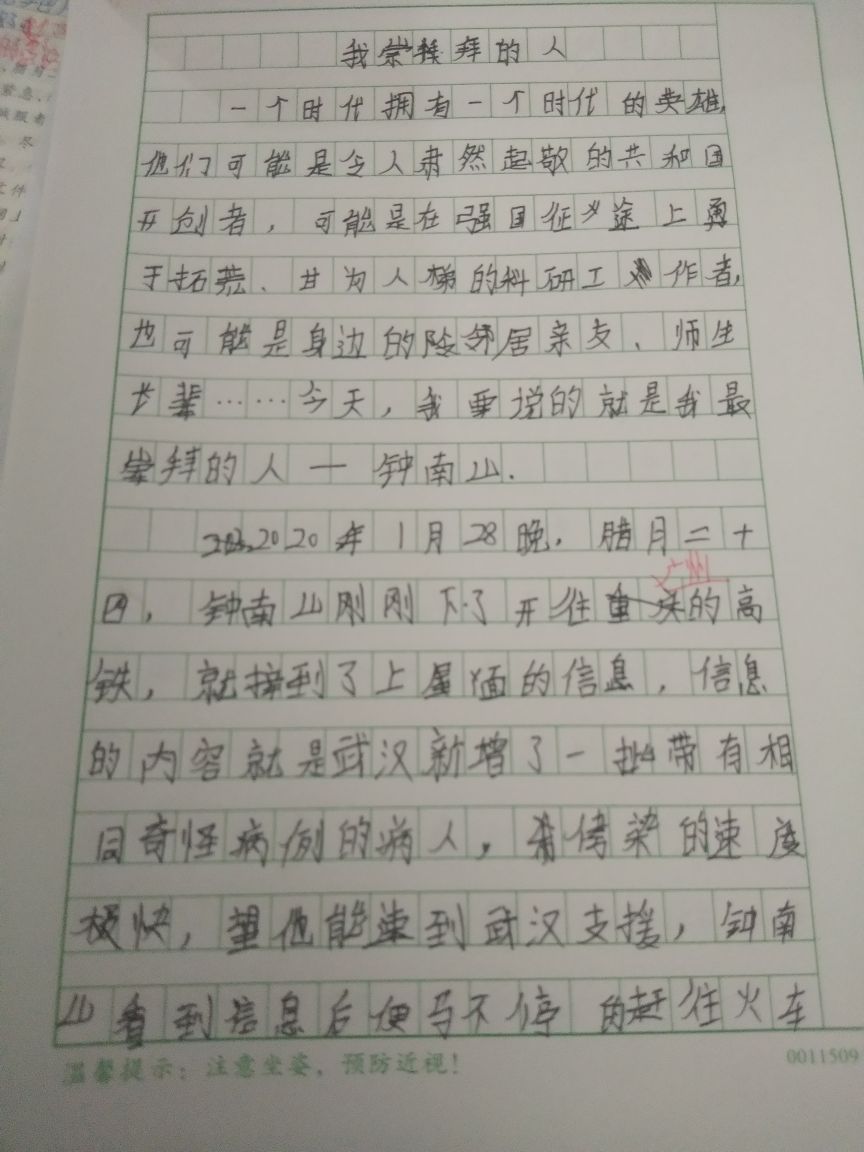 我崇拜的人
一个时代拥有一个时代的英雄,
他们可能是令人肃然起敬的共和国
开创者，可能是在强国征途上勇
于拓荒、甘为人梯的科研工作者,
也可能是身边的险邻居亲友、师生
长辈……今天，我要说的就是我最
崇拜的人——钟南山.
2020年1月28晚，腊月二十
四，钟南山刚刚下了开往广州的高
铁，就接到了上面的信息，信息
的内容就是武汉新增了一批带有相
同奇怪病例的病人，传染的速度
极快，望他能速到武汉支援，钟南
山看到信息后便马不停的赶往火车
温馨提示：注意坐姿，预防近视！
0011509